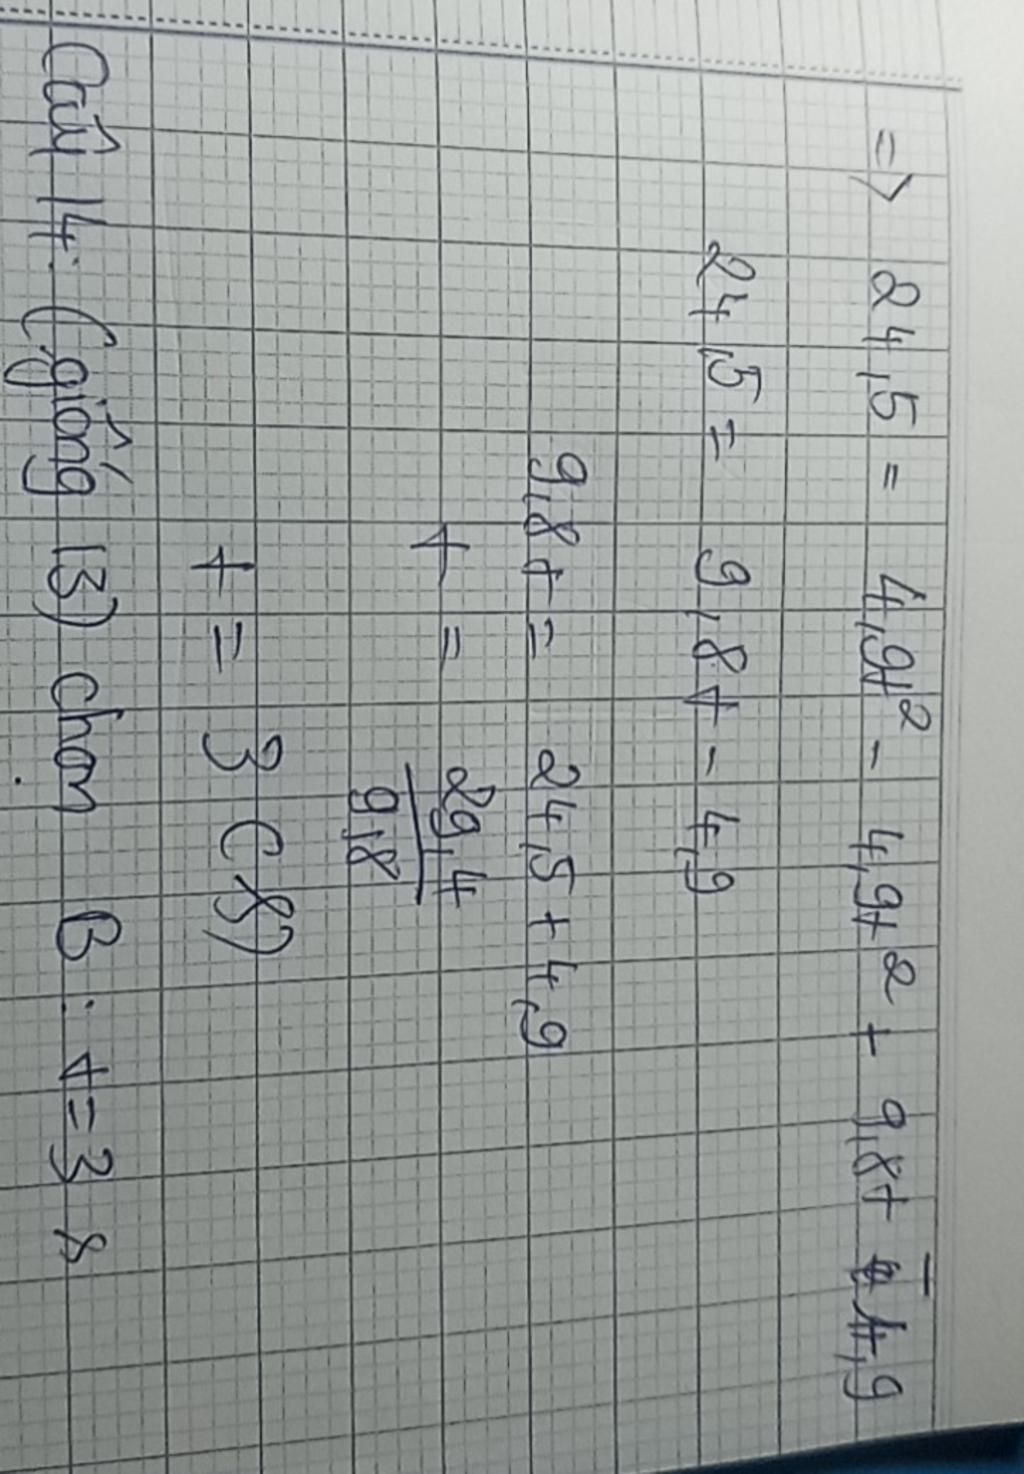 => 24,5 = 4,9t² - 4,9t² + 9,8t - 4,9
24,5 = 9,8t - 4,9
9,8t = 24,5 + 4,9
t = 29,4 / 9,8
t = 3 (s)
Câu 14: (giống 13) chọn B : t = 3 s